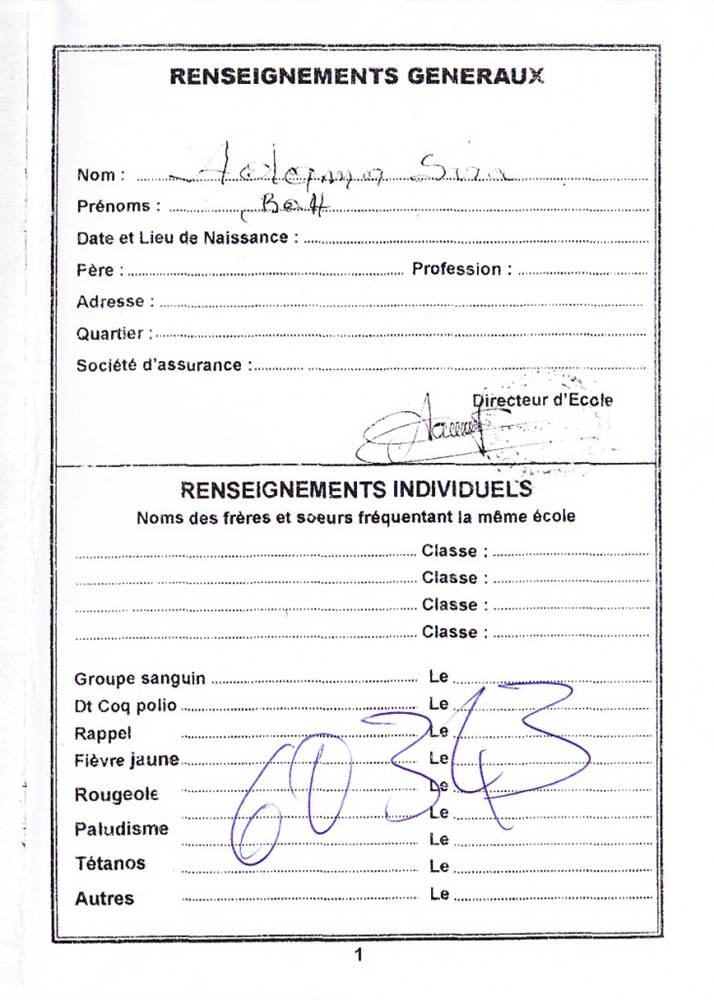 RENSEIGNEMENTS GENERAUX
Nom :
Prénoms :
Date et Lieu de Naissance :
Fère : Profession :
Adresse :
Quartier :
Société d'assurance :
Directeur d'Ecole
RENSEIGNEMENTS INDIVIDUELS
Noms des frères et soeurs fréquentant la même école
Classe :
Classe :
Classe :
Classe :
Groupe sanguin Le
Dt Coq polio Le
Rappel Le
Fièvre jaune Le
Rougeole Le
Le
Paludisme Le
Tétanos Le
Autres Le
60343
1